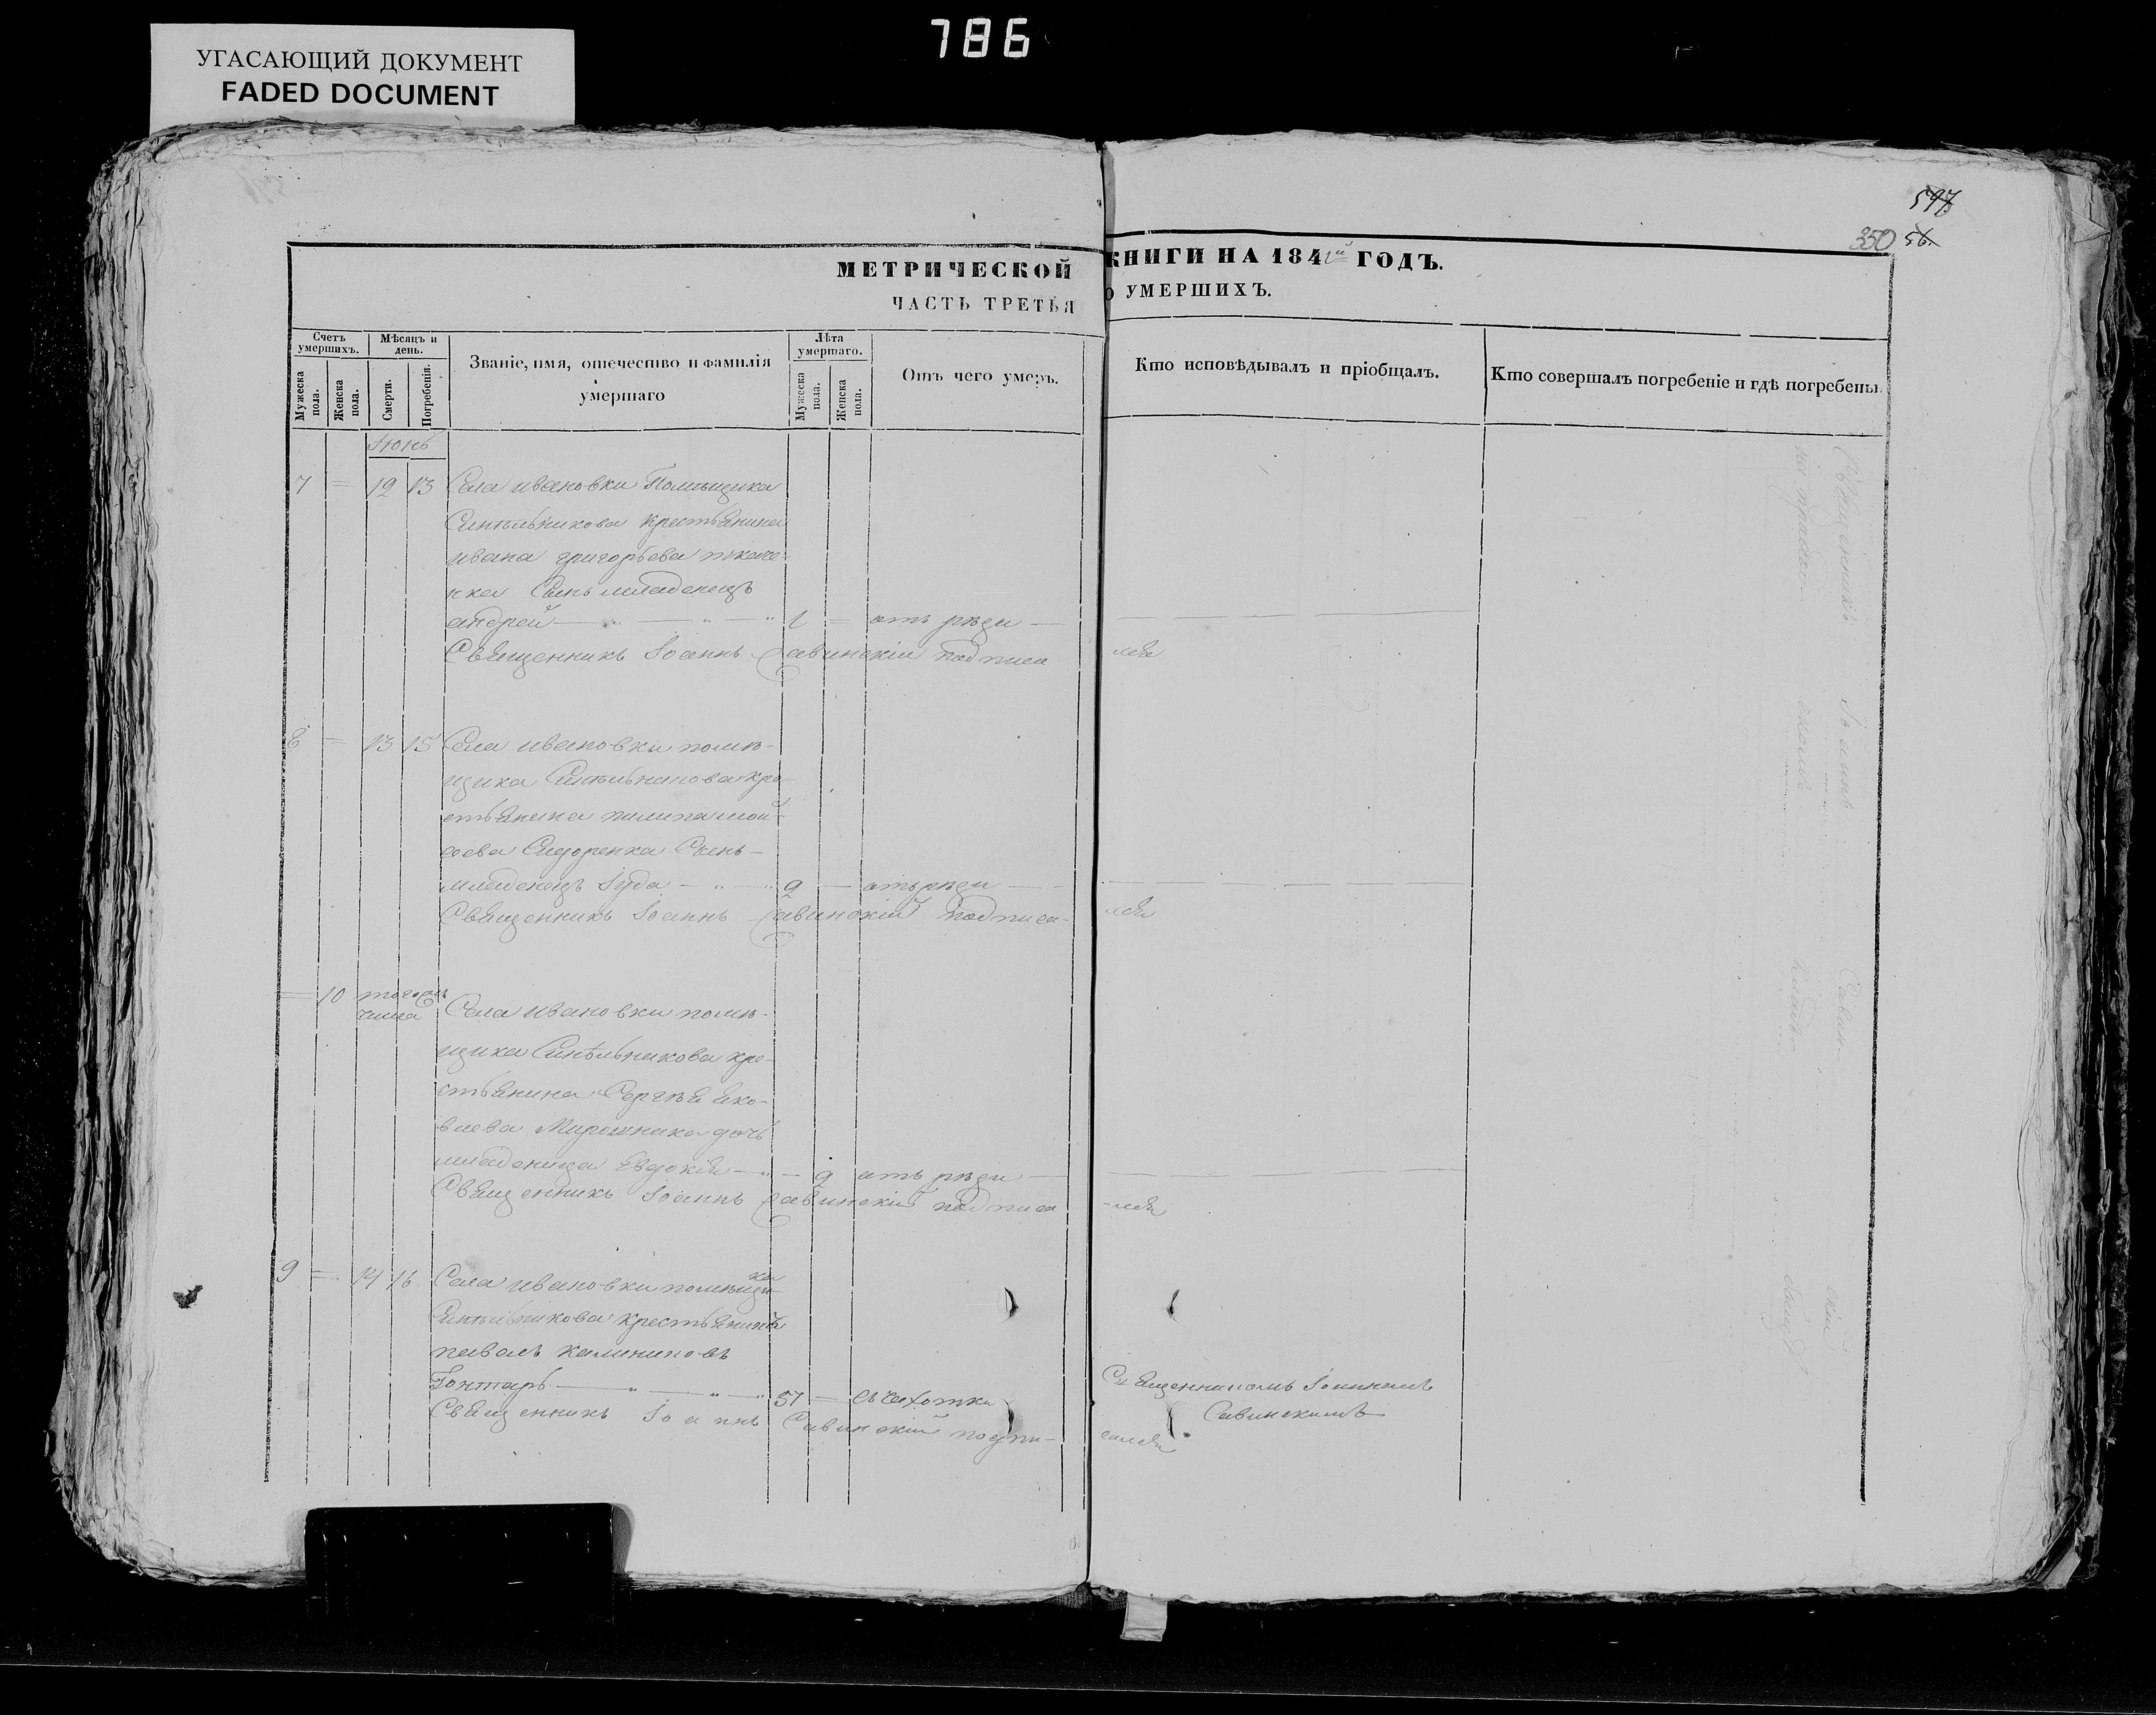 786
УГАСАЮЩИЙ ДОКУМЕНТ
FADED DOCUMENT
597
350 56.
МЕТРИЧЕСКОЙ КНИГИ НА 184 ГОДЪ.
ЧАСТЬ ТРЕТЬЯ О УМЕРШИХЪ.
Счетъ умершихъ.
Мужеска пола.
Женска пола.
Мѣсяцъ и день.
Смерти.
Погребенія.
Званіе, имя, отечество и фамилія
умершаго
Лѣта умершаго.
Мужеска пола.
Женска пола.
Отъ чего умеръ.
Кто исповѣдывалъ и пріобщалъ.
Кто совершалъ погребеніе и гдѣ погребены.
Іюнь
7 = 12 13 Села ивановки Помѣщика
Синѣльникова крестьянина
ивана григорьева ткаче-
нка Сынъ младенецъ
андрей — " — " — " 1 = отъ рѣзи —
Священникъ Іоаннъ Савинскій подписался
8 = 13 15 Села ивановки помѣ-
щика Синѣльникова кре-
стьянина пилипа мой-
сеева Сидоренка Сынъ —
младенецъ Іуда — " — " 2 — отъ рѣзи —
Священникъ Іоаннъ Савинскій подписа- лся
= 10 того жъ числа Села ивановки помѣ-
щика Синѣльникова кре-
стьянина Сергѣя яко-
влева Мирошника дочь
младеница Евдокія — " — 2 отъ рѣзи —
Священникъ Іоаннъ Савинскій подписа -лся
9 = 14 16 Села ивановки помѣщика
Синѣльникова крестьянинъ
павелъ калининовъ
Гонтарь — " — " — " 57 = съ чахотки Священникомъ Іоанномъ
Савинскимъ
Священникъ Іоаннъ Савинскій подпи- сался
Священникъ Іоаннъ Савин- скій
на приходскомъ кладбищѣ